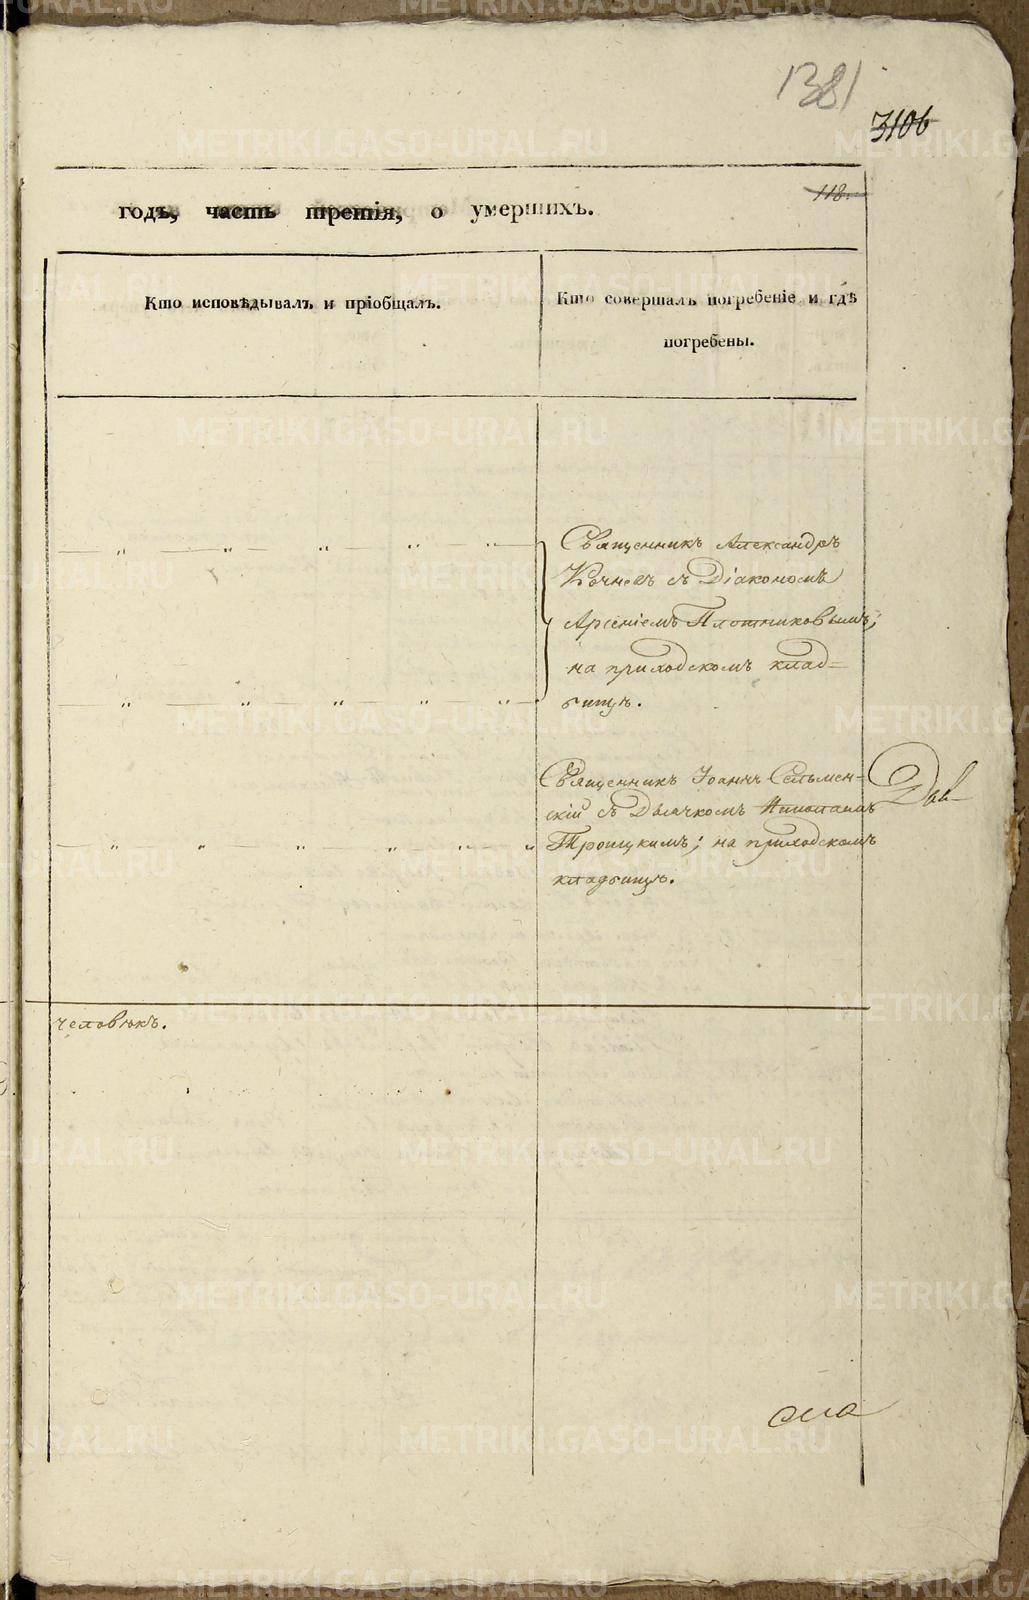 1381
3106
118.
годъ, часть третія, о умершихъ.
Кто исповѣдывалъ и пріобщалъ.
Кто совершалъ погребеніе и гдѣ
погребены.
Священникъ Александръ
съ Діакономъ
Арсеніемъ Плотниковымъ;
на приходскомъ клад=
бищѣ.
Священникъ Іоаннъ Сельмен-
скій съ Дьячкомъ
Троицкимъ; на приходскомъ
кладбищѣ.
человѣкъ.
METRIKI.GASO-URAL.RU